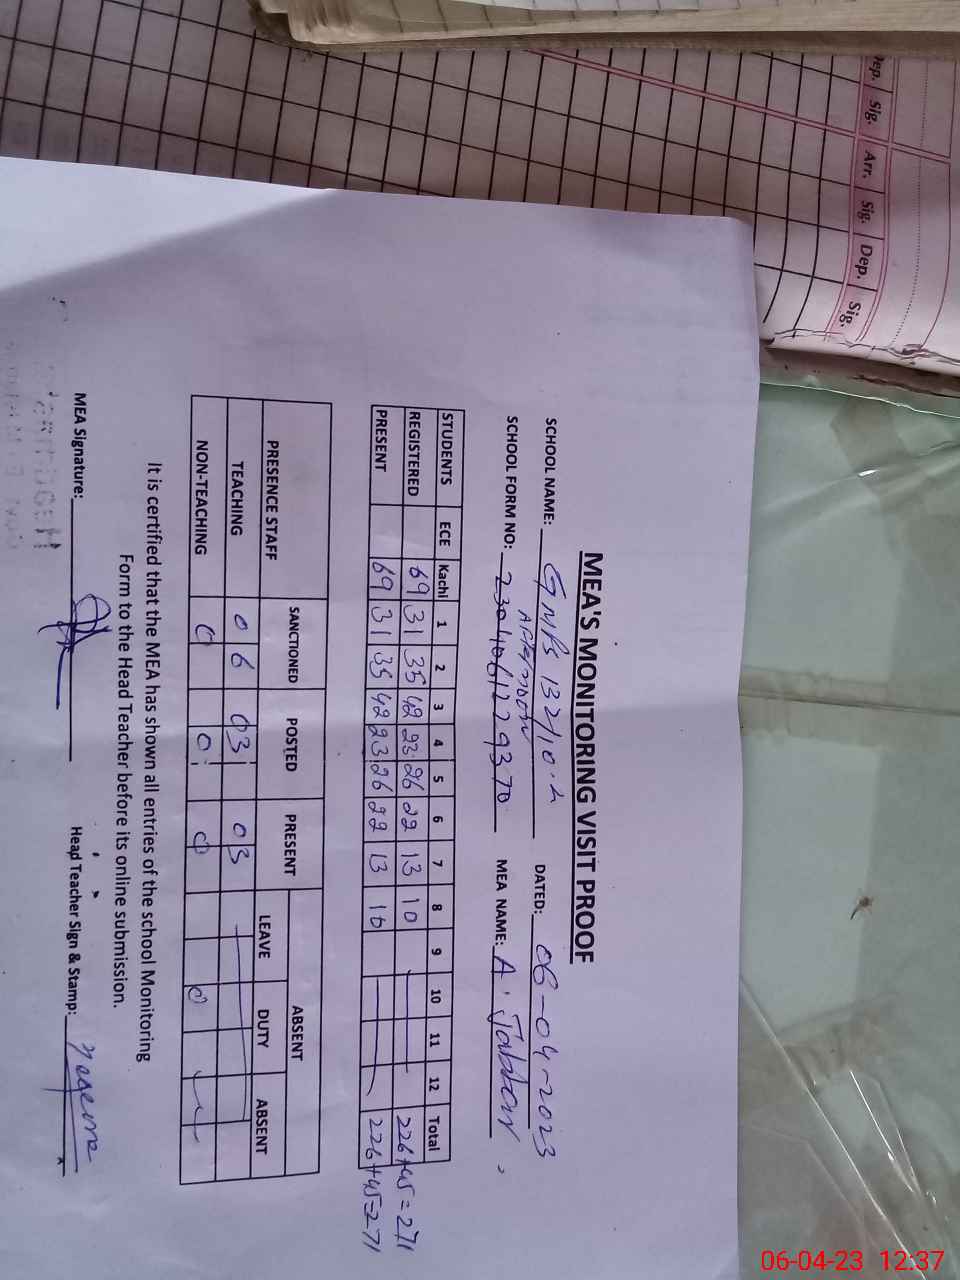 Dep. Sig. Arr. Sig. Dep. Sig.
MEA'S MONITORING VISIT PROOF
SCHOOL NAME: GMPS 132/10.L DATED: 06-04-2023
Afternoon
SCHOOL FORM NO: 2304061229370 MEA NAME: A. Jabbar
STUDENTS ECE Kachi 1 2 3 4 5 6 7 8 9 10 11 12 Total
REGISTERED 69 31 35 42 23 26 22 13 10 226+45=271
PRESENT 69 31 35 42 23 26 22 13 10 226+45=271
PRESENCE STAFF SANCTIONED POSTED PRESENT ABSENT
LEAVE DUTY ABSENT
TEACHING 06 03 03
NON-TEACHING 0 0 0 0
It is certified that the MEA has shown all entries of the school Monitoring
Form to the Head Teacher before its online submission.
MEA Signature: Head Teacher Sign & Stamp:
06-04-23 12:37